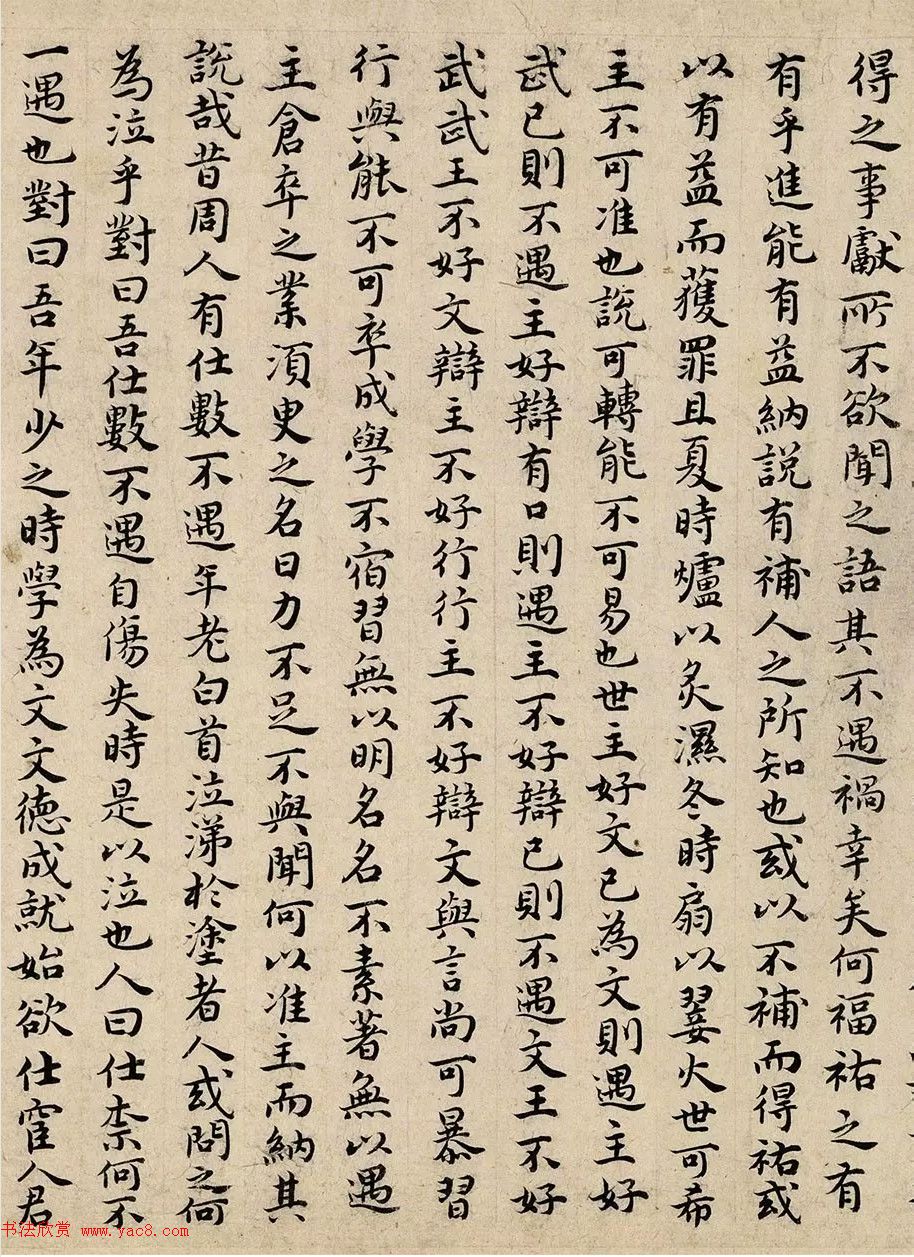 得之事獻所不欲聞之語其不遇禍幸矣何福祐之有
有乎進能有益納說有補人之所知也或以不補而得祐或
以有益而獲罪且夏時爐以炙濕冬時扇以翣火世可希
主不可准也說可轉能不可易也世主好文己為文則遇主好
武己則不遇主好辯有口則遇主不好辯己則不遇文王不好
武武王不好文辯主不好行行主不好辯文與言尚可暴習
行與能不可卒成學不宿習無以明名名不素著無以遇
主倉卒之業須臾之名日力不足不與聞何以准主而納其
說哉昔周人有仕數不遇年老白首泣涕於塗者人或問之何
為泣乎對曰吾仕數不遇自傷失時是以泣也人曰仕柰何不
一遇也對曰吾年少之時學為文文德成就始欲仕宦人君
书法欣赏 www.yac8.com